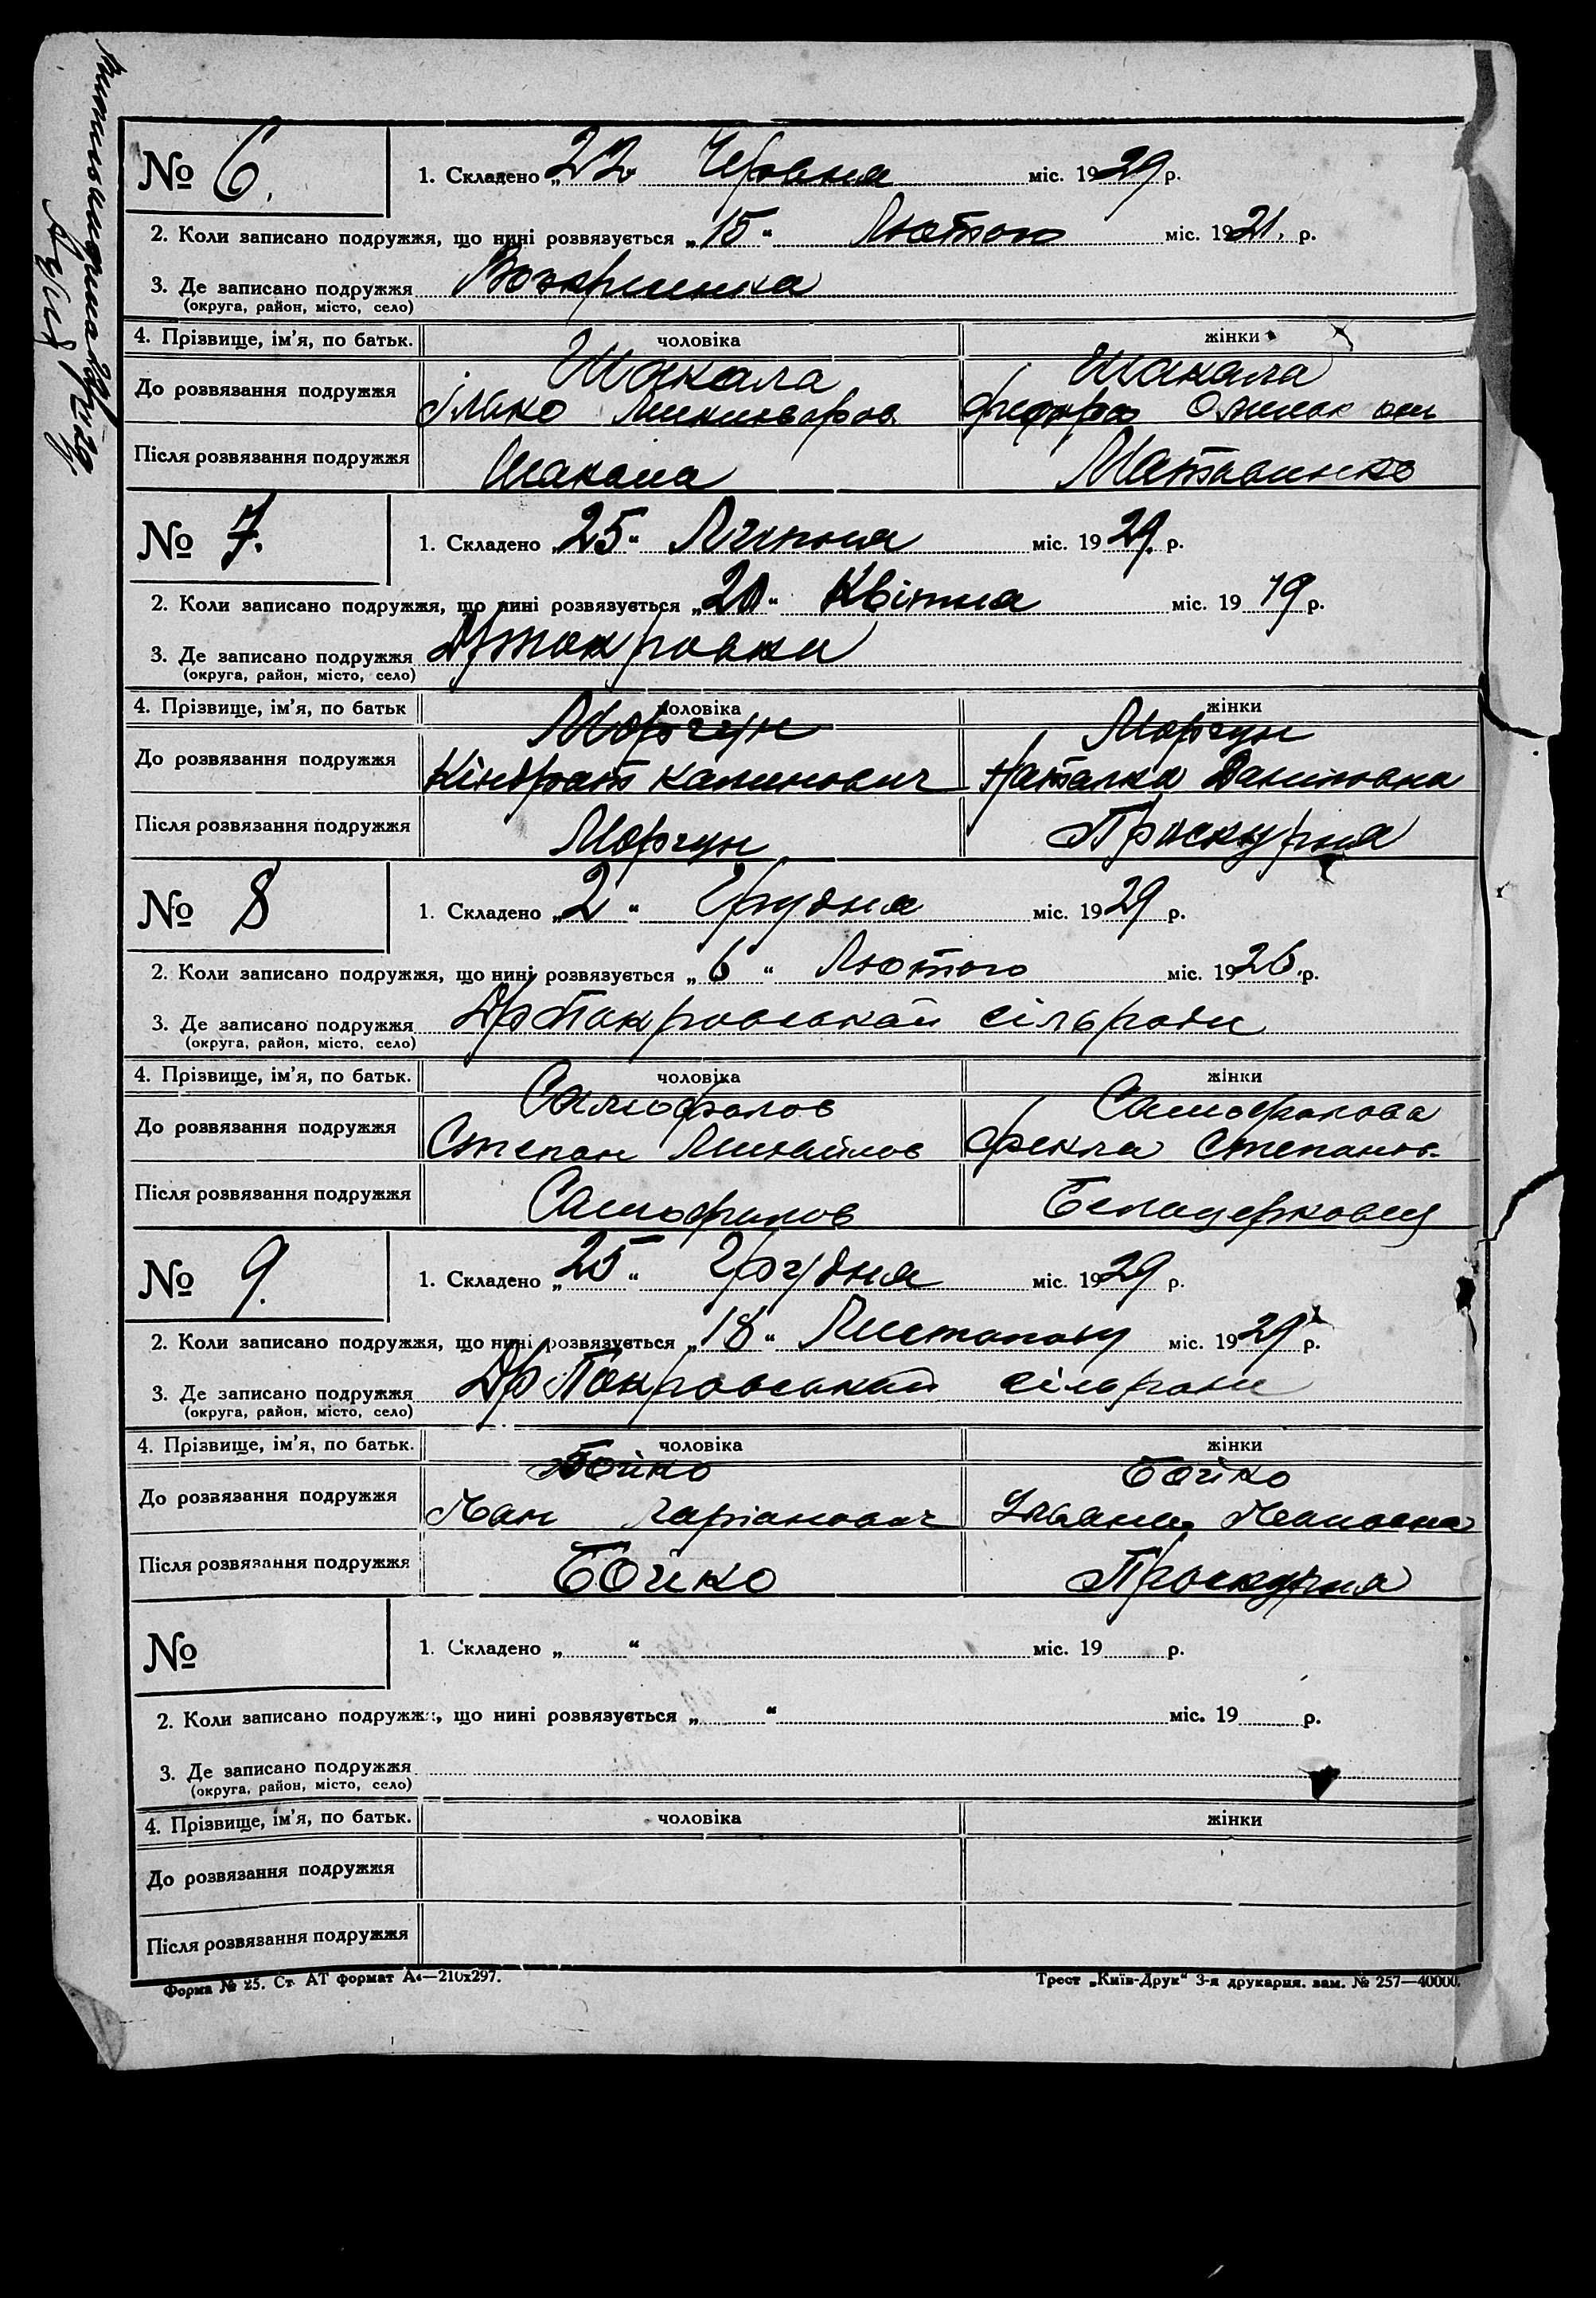 № 6. 1. Складено „22 Червня міс. 1929 р.
2. Коли записано подружжя, що нині розвязується „15“ Лютого міс. 1921. р.
3. Де записано подружжя
(округа, район, місто, село)
4. Прізвище, ім'я, по батьк. чоловіка жінки
Шакала Шакала
До розвязання подружжя
Ілько
Після розвязання подружжя Шакала Матвиенко
№ 7. 1. Складено „25“ Липня міс. 1929. р.
2. Коли записано подружжя, що нині розвязується „20“ Квітня міс. 1919 р.
3. Де записано подружжя
(округа, район, місто, село)
4. Прізвище, ім'я, по батьк чоловіка жінки
Моргун Моргун
До розвязання подружжя
Кіндрат Калинович Наталка Даниловна
Після розвязання подружжя Моргун Проскурня
№ 8 1. Складено „2“ Грудня міс. 1929 р.
2. Коли записано подружжя, що нині розвязується „6“ Лютого міс. 1926. р.
3. Де записано подружжя Др Покровській сільради
(округа, район, місто, село)
4. Прізвище, ім'я, по батьк. чоловіка жінки
Самофалов Самофалова
До розвязання подружжя
Степан Михайлов Фекла Степанов.
Після розвязання подружжя Самофалов Белацерковец
№ 9. 1. Складено „25“ Грудня міс. 1929 р.
2. Коли записано подружжя, що нині розвязується „18“ Листопаду міс. 1929 р.
3. Де записано подружжя Др Покровській сільради
(округа, район, місто, село)
4. Прізвище, ім'я, по батьк. чоловіка жінки
Бойко Бойко
До розвязання подружжя
Іван Ивановна
Після розвязання подружжя Бойко Проскурня
№ 1. Складено „ “ міс. 19 р.
2. Коли записано подружжя, що нині розвязується „ “ міс. 19 р.
3. Де записано подружжя
(округа, район, місто, село)
4. Прізвище, ім'я, по батьк. чоловіка жінки
До розвязання подружжя
Після розвязання подружжя
Форма № 25. Ст. АТ формат А4—210х297. Трест „Київ-Друк“ 3-я друкарня. зам. № 257—40000.